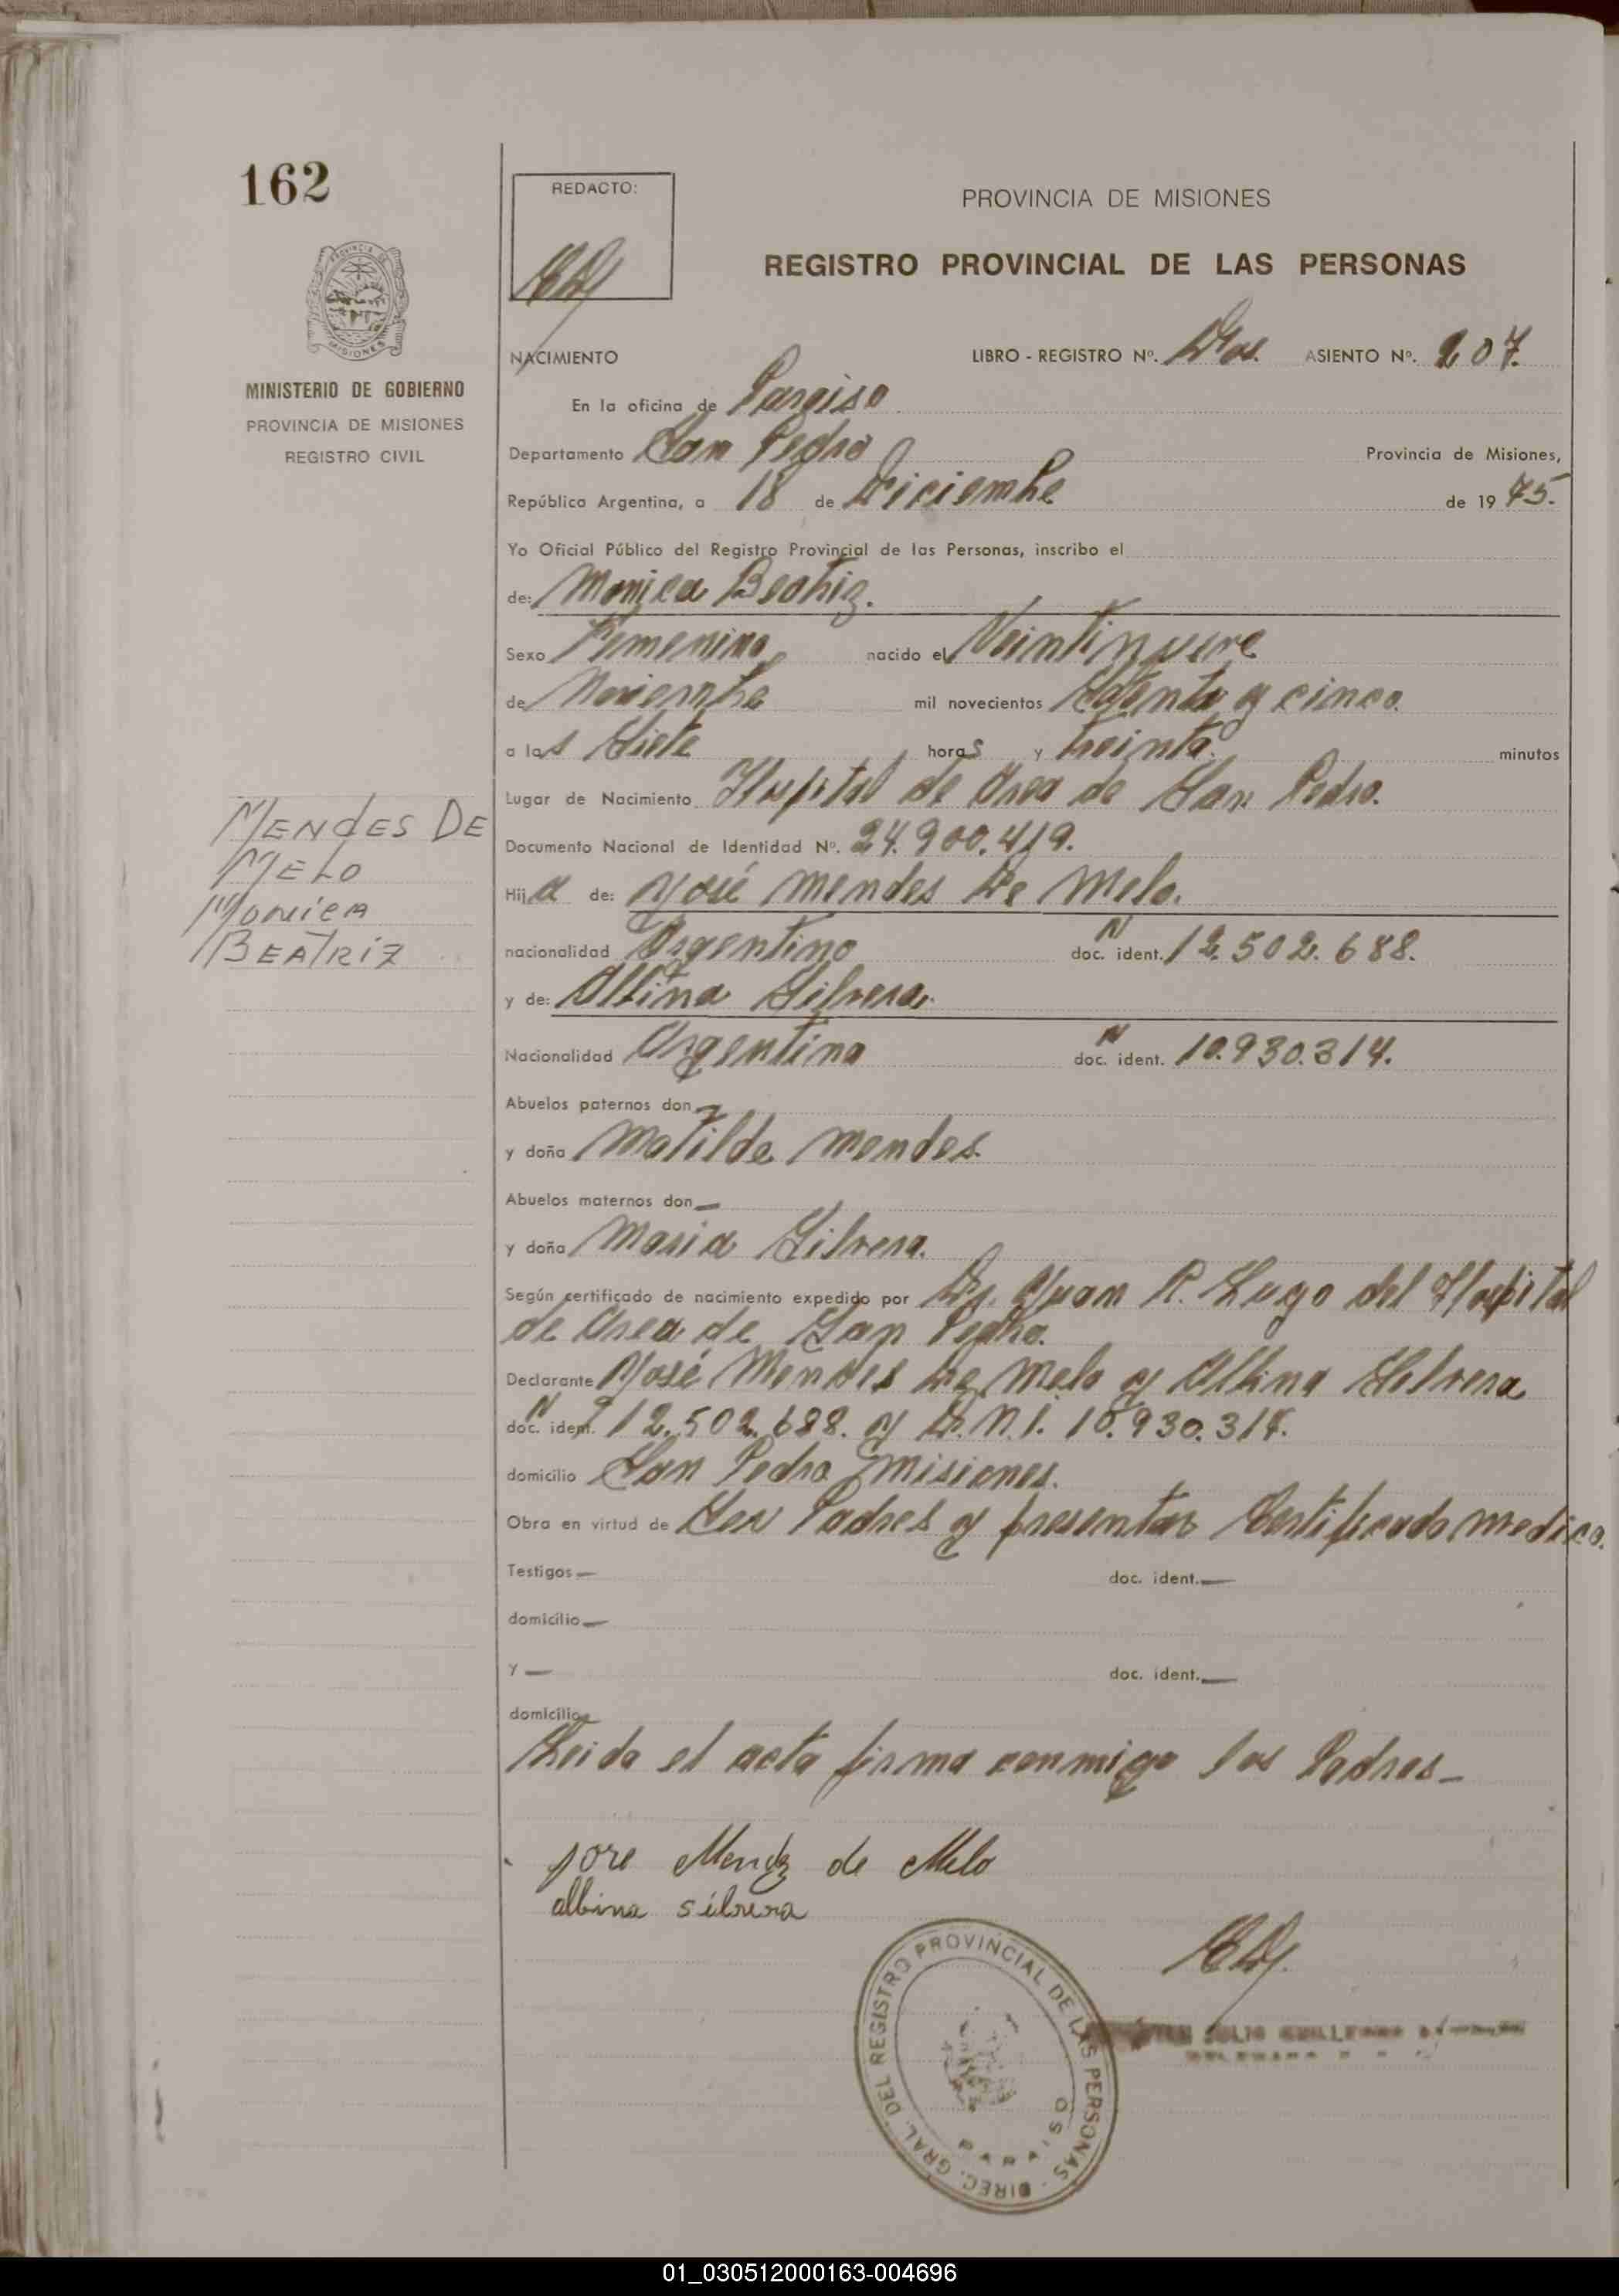 162
REDACTO:
PROVINCIA DE MISIONES
REGISTRO PROVINCIAL DE LAS PERSONAS
NACIMIENTO LIBRO - REGISTRO Nº. Dos. ASIENTO Nº. 207.
MINISTERIO DE GOBIERNO
PROVINCIA DE MISIONES
REGISTRO CIVIL
En la oficina de Paraiso
Departamento San Pedro Provincia de Misiones,
República Argentina, a 18 de Diciembre de 1975.
Yo Oficial Público del Registro Provincial de las Personas, inscribo el
de: Monica Beatriz.
Sexo Femenino, nacido el Veintinueve
de Noviembre mil novecientos Setenta y cinco.
a las Siete horas y treinta. minutos
Lugar de Nacimiento Hospital de Area de San Pedro.
MENDES DE
MELO
MONICA
BEATRIZ
Documento Nacional de Identidad Nº. 24.900.419.
Hija de: José Mendes De Melo.
nacionalidad Argentino doc. N ident. 12.502.688.
y de: Albina Silvera.
Nacionalidad Argentina doc. N ident. 10.930.314.
Abuelos paternos don —
y doña Matilde Mendes.
Abuelos maternos don —
y doña Maria Silvera.
Según certificado de nacimiento expedido por Dr. Juan R. Lugo del Hospital
de Area de San Pedro.
Declarante José Mendes De Melo y Albina Silvera
doc. N ident. 12.502.688. y D.N.I. 10.930.314.
domicilio San Pedro Misiones.
Obra en virtud de Ser Padres y presentar Certificado medico.
Testigos — doc. ident. —
domicilio —
y — doc. ident. —
domicilio —
Leida el acta firma conmigo los Padres —
jose Mendz de Melo
albina silvera
DIREC. GRAL. DEL REGISTRO PROVINCIAL DE LAS PERSONAS
PARAISO
JULIO GUILLERMO
01_030512000163-004696